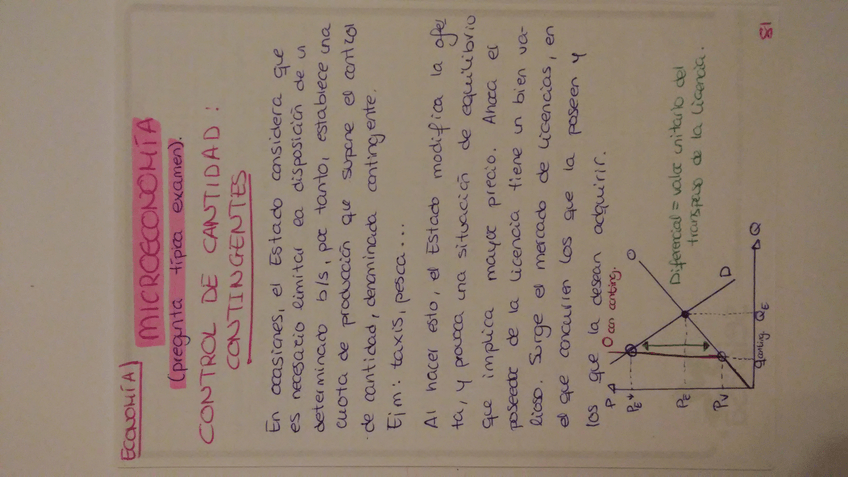 ECONOMÍA)
MICROECONOMÍA
(pregunta típica examen).
CONTROL DE CANTIDAD:
CONTINGENTES
En ocasiones, el Estado considera que
es necesario limitar la disposición de un
determinado b/s, por tanto, establece una
cuota de producción que supone el control
de cantidad, denominada contingente.
Ejm: taxis, pesca...
Al hacer esto, el Estado modifica la ofer
ta, y provoca una situación de equilibrio
que implica mayor precio. Ahora el
poseedor de la licencia tiene un bien va-
lioso. Surge el mercado de licencias, en
el que concurren los que la poseen y
los que la desean adquirir.
P
O con conting.
O
PE*
PE
PV
D
Qconting.
QE
Q
Diferencial = valor unitario del
transpaso de la licencia.
81